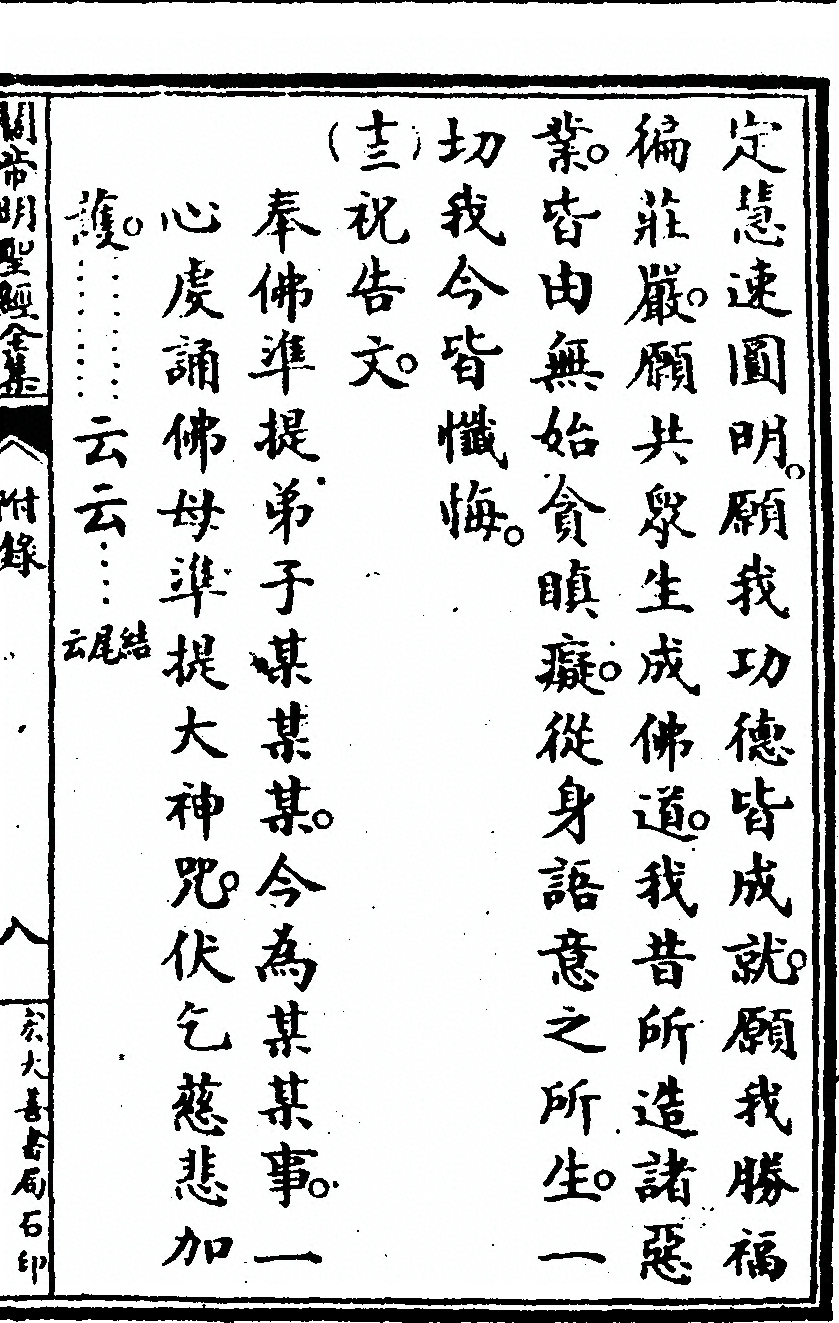 定慧速圓明。願我功德皆成就。願我勝福
徧莊嚴。願共眾生成佛道。我昔所造諸惡
業。皆由無始貪瞋癡。從身語意之所生。一
切我今皆懺悔。
(十三)祝告文。
奉佛準提弟子某某某。今為某某事。一
心虔誦佛母準提大神咒。伏乞慈悲加
護。⋯⋯⋯⋯云云⋯⋯結尾云
關帝明聖經全集
附錄
八
宏大善書局石印